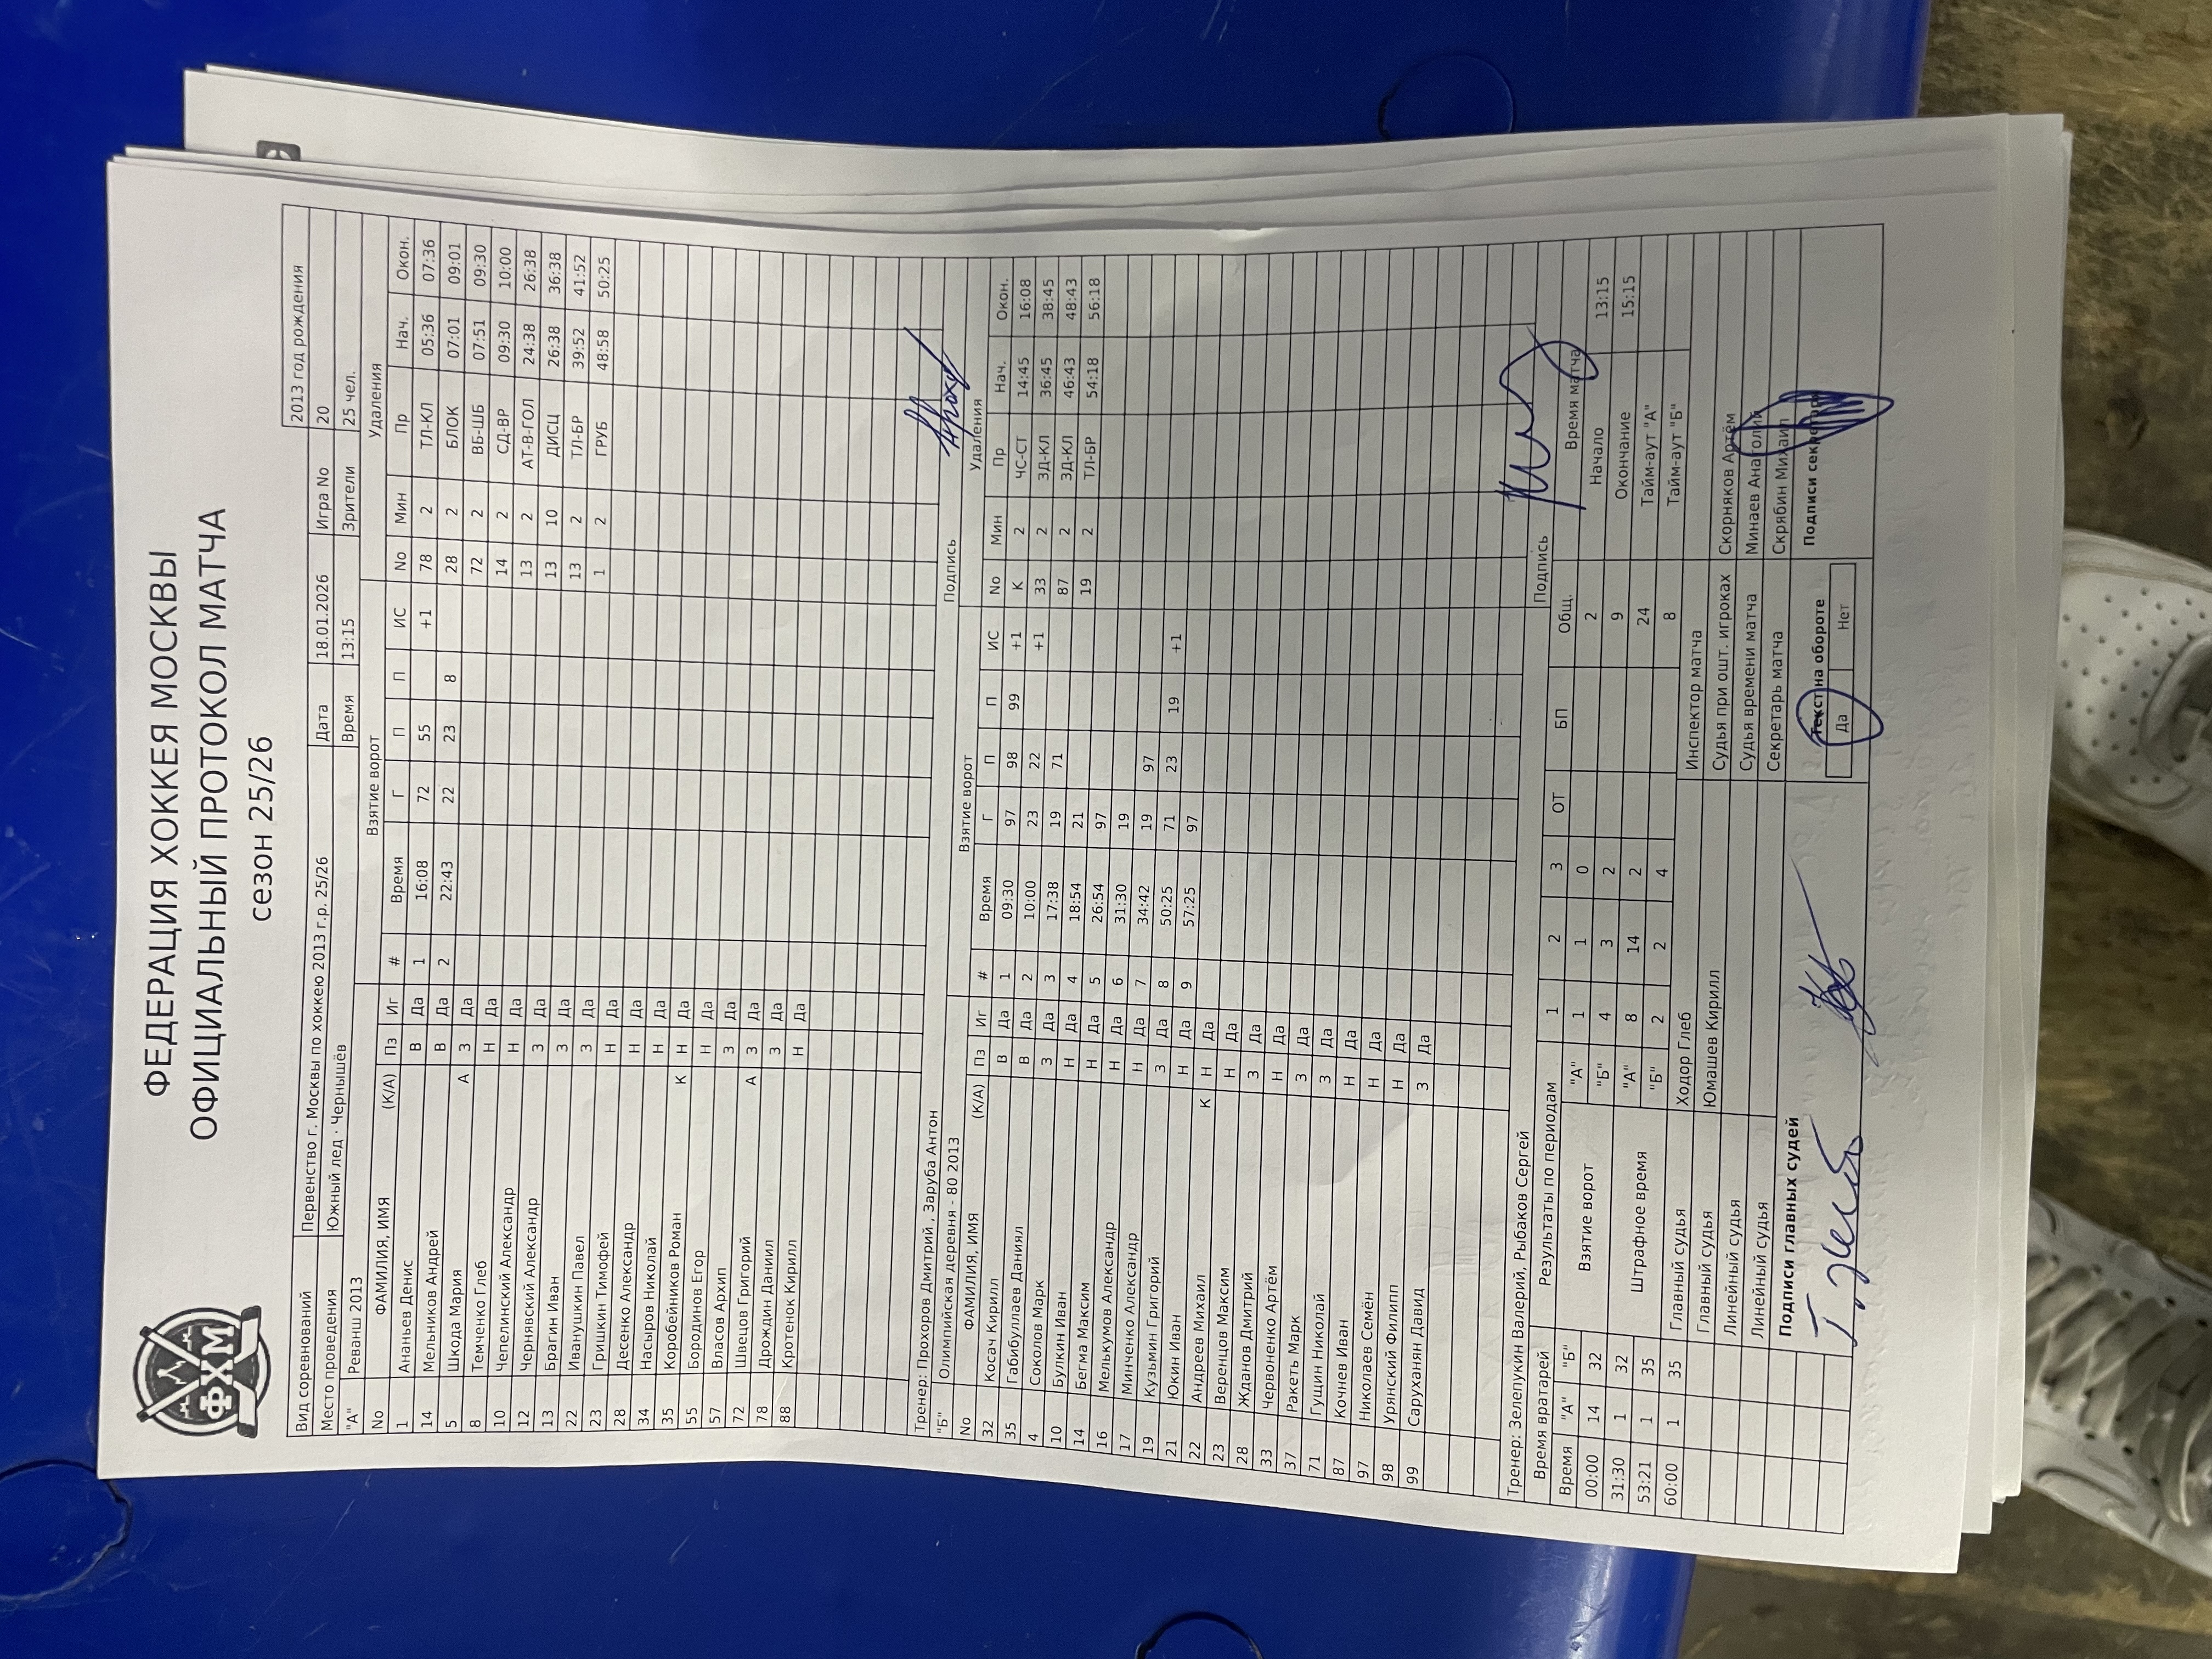 ФХМ
ФЕДЕРАЦИЯ ХОККЕЯ МОСКВЫ
ОФИЦИАЛЬНЫЙ ПРОТОКОЛ МАТЧА
сезон 25/26
2013 год рождения
Вид соревнований Первенство г. Москвы по хоккею 2013 г.р. 25/26 Дата 18.01.2026 Игра No 20
Место проведения Южный лед · Чернышёв Время 13:15 Зрители 25 чел.
"А" Реванш 2013 Взятие ворот Удаления
No ФАМИЛИЯ, ИМЯ (К/А) Пз Иг # Время Г П П ИС No Мин Пр Нач. Окон.
1 Ананьев Денис В Да 1 16:08 72 55 +1 78 2 ТЛ-КЛ 05:36 07:36
14 Мельников Андрей В Да 2 22:43 22 23 8 28 2 БЛОК 07:01 09:01
5 Школа Мария А З Да 72 2 ВБ-ШБ 07:51 09:30
8 Темченко Глеб Н Да 14 2 СД-ВР 09:30 10:00
10 Чепелинский Александр Н Да 13 2 АТ-В-ГОЛ 24:38 26:38
12 Чернявский Александр З Да 13 10 ДИСЦ 26:38 36:38
13 Брагин Иван З Да 13 2 ТЛ-БР 39:52 41:52
22 Иванушкин Павел З Да 1 2 ГРУБ 48:58 50:25
23 Гришкин Тимофей Н Да
28 Десенко Александр Н Да
34 Насыров Николай Н Да
35 Коробейников Роман К Н Да
55 Бородинов Егор Н Да
57 Власов Архип З Да
72 Швецов Григорий А З Да
78 Дрождин Даниил З Да
88 Кротенок Кирилл Н Да
Тренер: Прохоров Дмитрий , Заруба Антон Подпись
"Б" Олимпийская деревня - 80 2013 Взятие ворот Удаления
No ФАМИЛИЯ, ИМЯ (К/А) Пз Иг # Время Г П П ИС No Мин Пр Нач. Окон.
32 Косач Кирилл В Да 1 09:30 97 98 99 +1 К 2 ЧС-СТ 14:45 16:08
35 Габибуллаев Даниял В Да 2 10:00 23 22 +1 33 2 ЗД-КЛ 36:45 38:45
4 Соколов Марк З Да 3 17:38 19 71 87 2 ЗД-КЛ 46:43 48:43
10 Булкин Иван Н Да 4 18:54 21 19 2 ТЛ-БР 54:18 56:18
14 Бегма Максим Н Да 5 26:54 97
16 Мелькумов Александр Н Да 6 31:30 19
17 Минченко Александр Н Да 7 34:42 19 97
19 Кузьмин Григорий З Да 8 50:25 71 23 19 +1
21 Юкин Иван Н Да 9 57:25 97
22 Андреев Михаил К Н Да
23 Веренцов Максим Н Да
28 Жданов Дмитрий З Да
33 Червоненко Артём Н Да
37 Ракеть Марк З Да
71 Гущин Николай З Да
87 Кочнев Иван Н Да
97 Николаев Семён Н Да
98 Урянский Филипп Н Да
99 Саруханян Давид З Да
Тренер: Зелепукин Валерий, Рыбаков Сергей Подпись
Время вратарей Результаты по периодам 1 2 3 ОТ БП Общ. Время матча
Время "А" "Б" Взятие ворот "А" 1 1 0 2 Начало 13:15
00:00 14 32 "Б" 4 3 2 9 Окончание 15:15
31:30 1 32 Штрафное время "А" 8 14 2 24 Тайм-аут "А"
53:21 1 35 "Б" 2 2 4 8 Тайм-аут "Б"
60:00 1 35 Главный судья Ходор Глеб Инспектор матча
Главный судья Юмашев Кирилл Судья при ошт. игроках Скорняков Артём
Линейный судья Судья времени матча Минаев Анатолий
Линейный судья Секретарь матча Скрябин Михаил
Подписи главных судей Текст на обороте Подписи секретаря
Да Нет